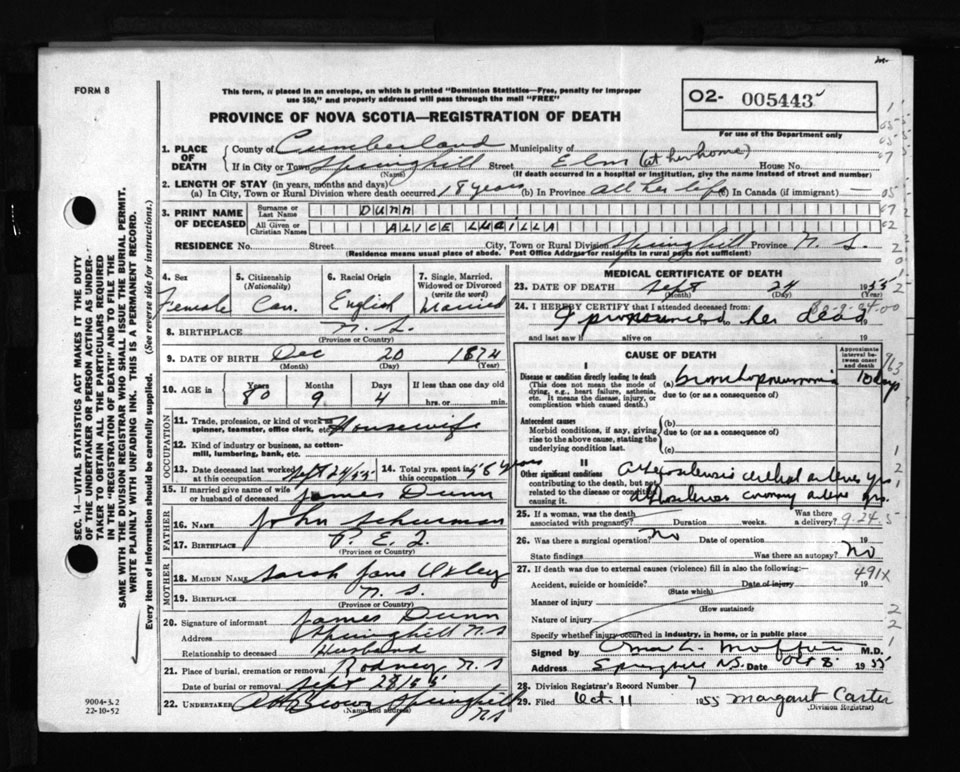 FORM 8
This form, if placed in an envelope, on which is printed "Dominion Statistics—Free, penalty for improper
use $50," and properly addressed will pass through the mail "FREE"
PROVINCE OF NOVA SCOTIA—REGISTRATION OF DEATH
O2- 005443
For use of the Department only
1. PLACE OF DEATH
County of Cumberland Municipality of
If in City or Town Springhill Street Elm (at her home) House No.
(Name) (If death occurred in a hospital or institution, give the name instead of street and number)
2. LENGTH OF STAY (in years, months and days)
(a) In City, Town or Rural Division where death occurred 18 years (b) In Province all her life (c) In Canada (if immigrant) —
3. PRINT NAME OF DECEASED
Surname or Last Name DUNN
All Given or Christian Names ALICE LUCILLA
RESIDENCE No. Street City, Town or Rural Division Springhill Province N. S.
(Residence means usual place of abode. Post Office Address for residents in rural parts not sufficient)
4. Sex Female
5. Citizenship (Nationality) Can.
6. Racial Origin English
7. Single, Married, Widowed or Divorced (write the word) Married
8. BIRTHPLACE N. S.
(Province or Country)
9. DATE OF BIRTH Dec 20 1874
(Month) (Day) (Year)
10. AGE in Years 80 Months 9 Days 4 If less than one day old
hrs. or min.
OCCUPATION
11. Trade, profession, or kind of work as spinner, teamster, office clerk, etc. Housewife
12. Kind of industry or business, as cotton-mill, lumbering, bank, etc.
13. Date deceased last worked at this occupation Sept 24/55
14. Total yrs. spent in this occupation 58 years
15. If married give name of wife or husband of deceased James Dunn
FATHER
16. NAME John Schurman
17. BIRTHPLACE P. E. I.
(Province or Country)
MOTHER
18. MAIDEN NAME Sarah Jane Oxley
19. BIRTHPLACE N. S.
(Province or Country)
20. Signature of informant James Dunn
Address Springhill N S
Relationship to deceased Husband
21. Place of burial, cremation or removal Rodney N. S
Date of burial or removal Sept 28/55
22. UNDERTAKER Brown Springhill N S
(Name and address)
MEDICAL CERTIFICATE OF DEATH
23. DATE OF DEATH Sept 24 1955
(Month) (Day) (Year)
24. I HEREBY CERTIFY that I attended deceased from:
I pronounced her dead
and last saw h alive on 19
CAUSE OF DEATH
Approximate interval between onset and death
I
Disease or condition directly leading to death
(This does not mean the mode of dying, e.g., heart failure, asthenia. etc. It means the disease, injury, or complication which caused death.)
(a) bronchopneumonia 10 days
due to (or as a consequence of)
Antecedent causes
Morbid conditions, if any, giving rise to the above cause, stating the underlying condition last.
(b)
due to (or as a consequence of)
(c)
II
Other significant conditions contributing to the death, but not related to the disease or condition causing it.
arteries yrs.
coronary yrs.
25. If a woman, was the death associated with pregnancy? Duration weeks. Was there a delivery?
9-24-5
26. Was there a surgical operation? no Date of operation 19
State findings Was there an autopsy? no
27. If death was due to external causes (violence) fill in also the following:
491x
Accident, suicide or homicide? Date of injury 19
(State which)
Manner of injury
(How sustained)
Nature of injury
Specify whether injury occurred in industry, in home, or in public place
Signed by M.D.
Address Springhill N.S. Date Oct 8 1955
28. Division Registrar's Record Number 7
29. Filed Oct. 11 1955 Margaret Carter
(Division Registrar)
SEC. 14—VITAL STATISTICS ACT MAKES IT THE DUTY
OF THE UNDERTAKER OR PERSON ACTING AS UNDER-
TAKER TO OBTAIN ALL THE PARTICULARS REQUIRED
IN THE "REGISTRATION OF DEATH" AND TO FILE THE
SAME WITH THE DIVISION REGISTRAR WHO SHALL ISSUE THE BURIAL PERMIT.
WRITE PLAINLY WITH UNFADING INK. THIS IS A PERMANENT RECORD.
Every item of information should be carefully supplied. (See reverse side for instructions.)
9004-3.2
22-10-52